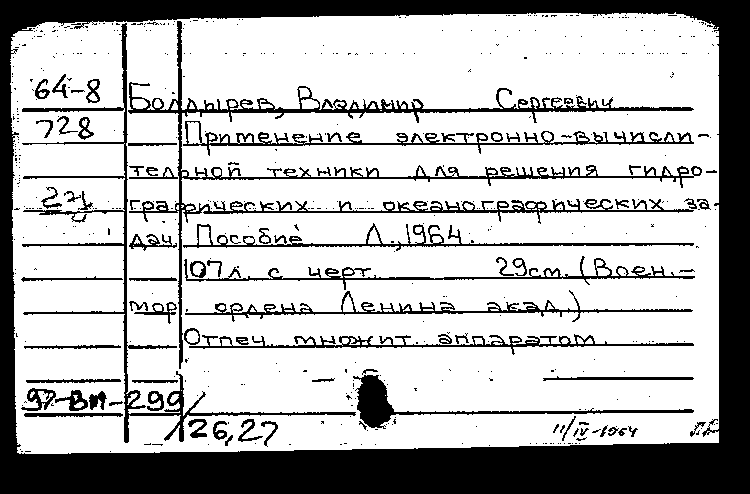 64-8 Болдырев, Владимир Сергеевич
728 Применение электронно-вычисли-
тельной техники для решения гидро-
графических и океанографических за-
дач. Пособие Л., 1964.
107л. с черт. 29см. (Воен.-
мор. ордена Ленина акад.)
Отпеч. множит. аппаратом.
97-ВМ-299/26,27
11/IV-1964